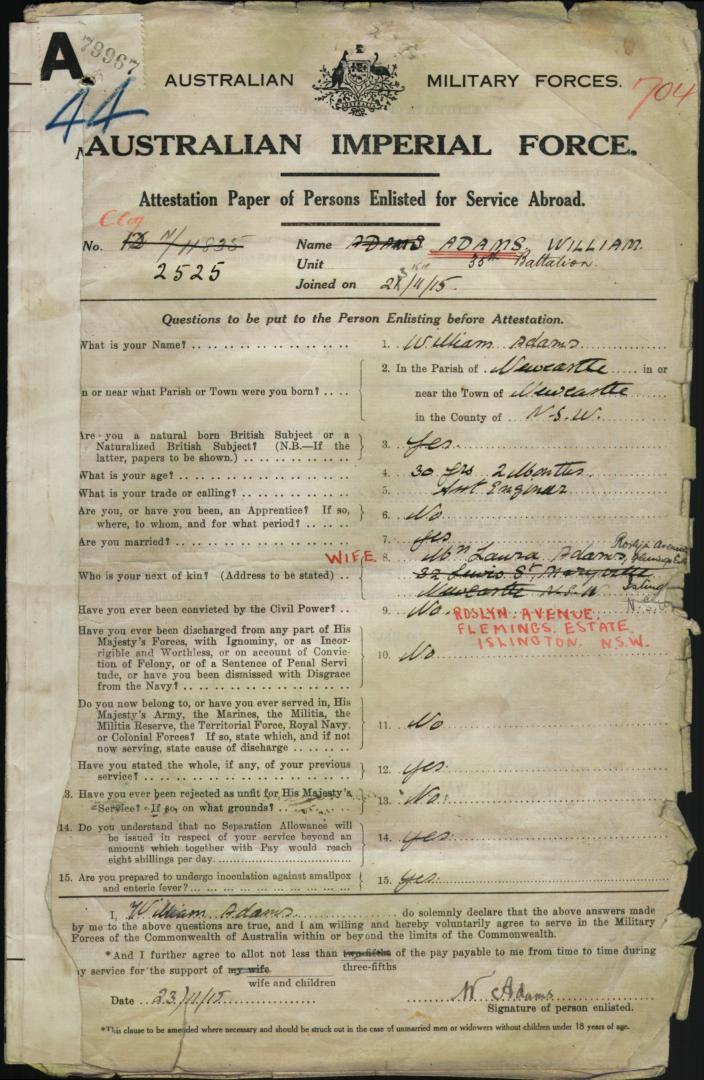 A
79967
44
AUSTRALIAN MILITARY FORCES.
704
AUSTRALIAN IMPERIAL FORCE.
Attestation Paper of Persons Enlisted for Service Abroad.
No. 2525
Name ADAMS ADAMS, WILLIAM
Unit 35th Battalion.
Joined on /11/15.
Questions to be put to the Person Enlisting before Attestation.
What is your Name? .. .. 1. William Adams
2. In the Parish of Newcastle in or
n or near what Parish or Town were you born? .... near the Town of Newcastle
in the County of N.S.W.
Are you a natural born British Subject or a
Naturalized British Subject? (N.B.—If the
latter, papers to be shown.) 3. Yes.
What is your age? 4. 30 yrs 2 Months
What is your trade or calling? 5. Engineer
Are you, or have you been, an Apprentice? If so,
where, to whom, and for what period? 6. No
Are you married? 7. yes
WIFE 8. Mrs Laura Adams, Roslyn Avenue
Who is your next of kin? (Address to be stated) .. 32 Lewis St Maryville
Newcastle N.S.W
Have you ever been convicted by the Civil Power? .. 9. No.
ROSLYN AVENUE
FLEMINGS ESTATE
ISLINGTON N.S.W.
Have you ever been discharged from any part of His
Majesty's Forces, with Ignominy, or as Incor-
rigible and Worthless, or on account of Convic
tion of Felony, or of a Sentence of Penal Servi
tude, or have you been dismissed with Disgrace
from the Navy? 10. No
Do you now belong to, or have you ever served in, His
Majesty's Army, the Marines, the Militia, the
Militia Reserve, the Territorial Force, Royal Navy,
or Colonial Forces? If so, state which, and if not
now serving, state cause of discharge 11. No
Have you stated the whole, if any, of your previous
service? 12. yes
3. Have you ever been rejected as unfit for His Majesty's
Service? If so, on what grounds? 13. No.
14. Do you understand that no Separation Allowance will
be issued in respect of your service beyond an
amount which together with Pay would reach
eight shillings per day. 14. yes.
15. Are you prepared to undergo inoculation against smallpox
and enteric fever? 15. yes.
I, William Adams do solemnly declare that the above answers made
by me to the above questions are true, and I am willing and hereby voluntarily agree to serve in the Military
Forces of the Commonwealth of Australia within or beyond the limits of the Commonwealth.
*And I further agree to allot not less than two-fifths of the pay payable to me from time to time during
three-fifths
y service for the support of my wife
wife and children
Date 23/11/15. W Adams
Signature of person enlisted.
*This clause to be amended where necessary and should be struck out in the case of unmarried men or widowers without children under 18 years of age.